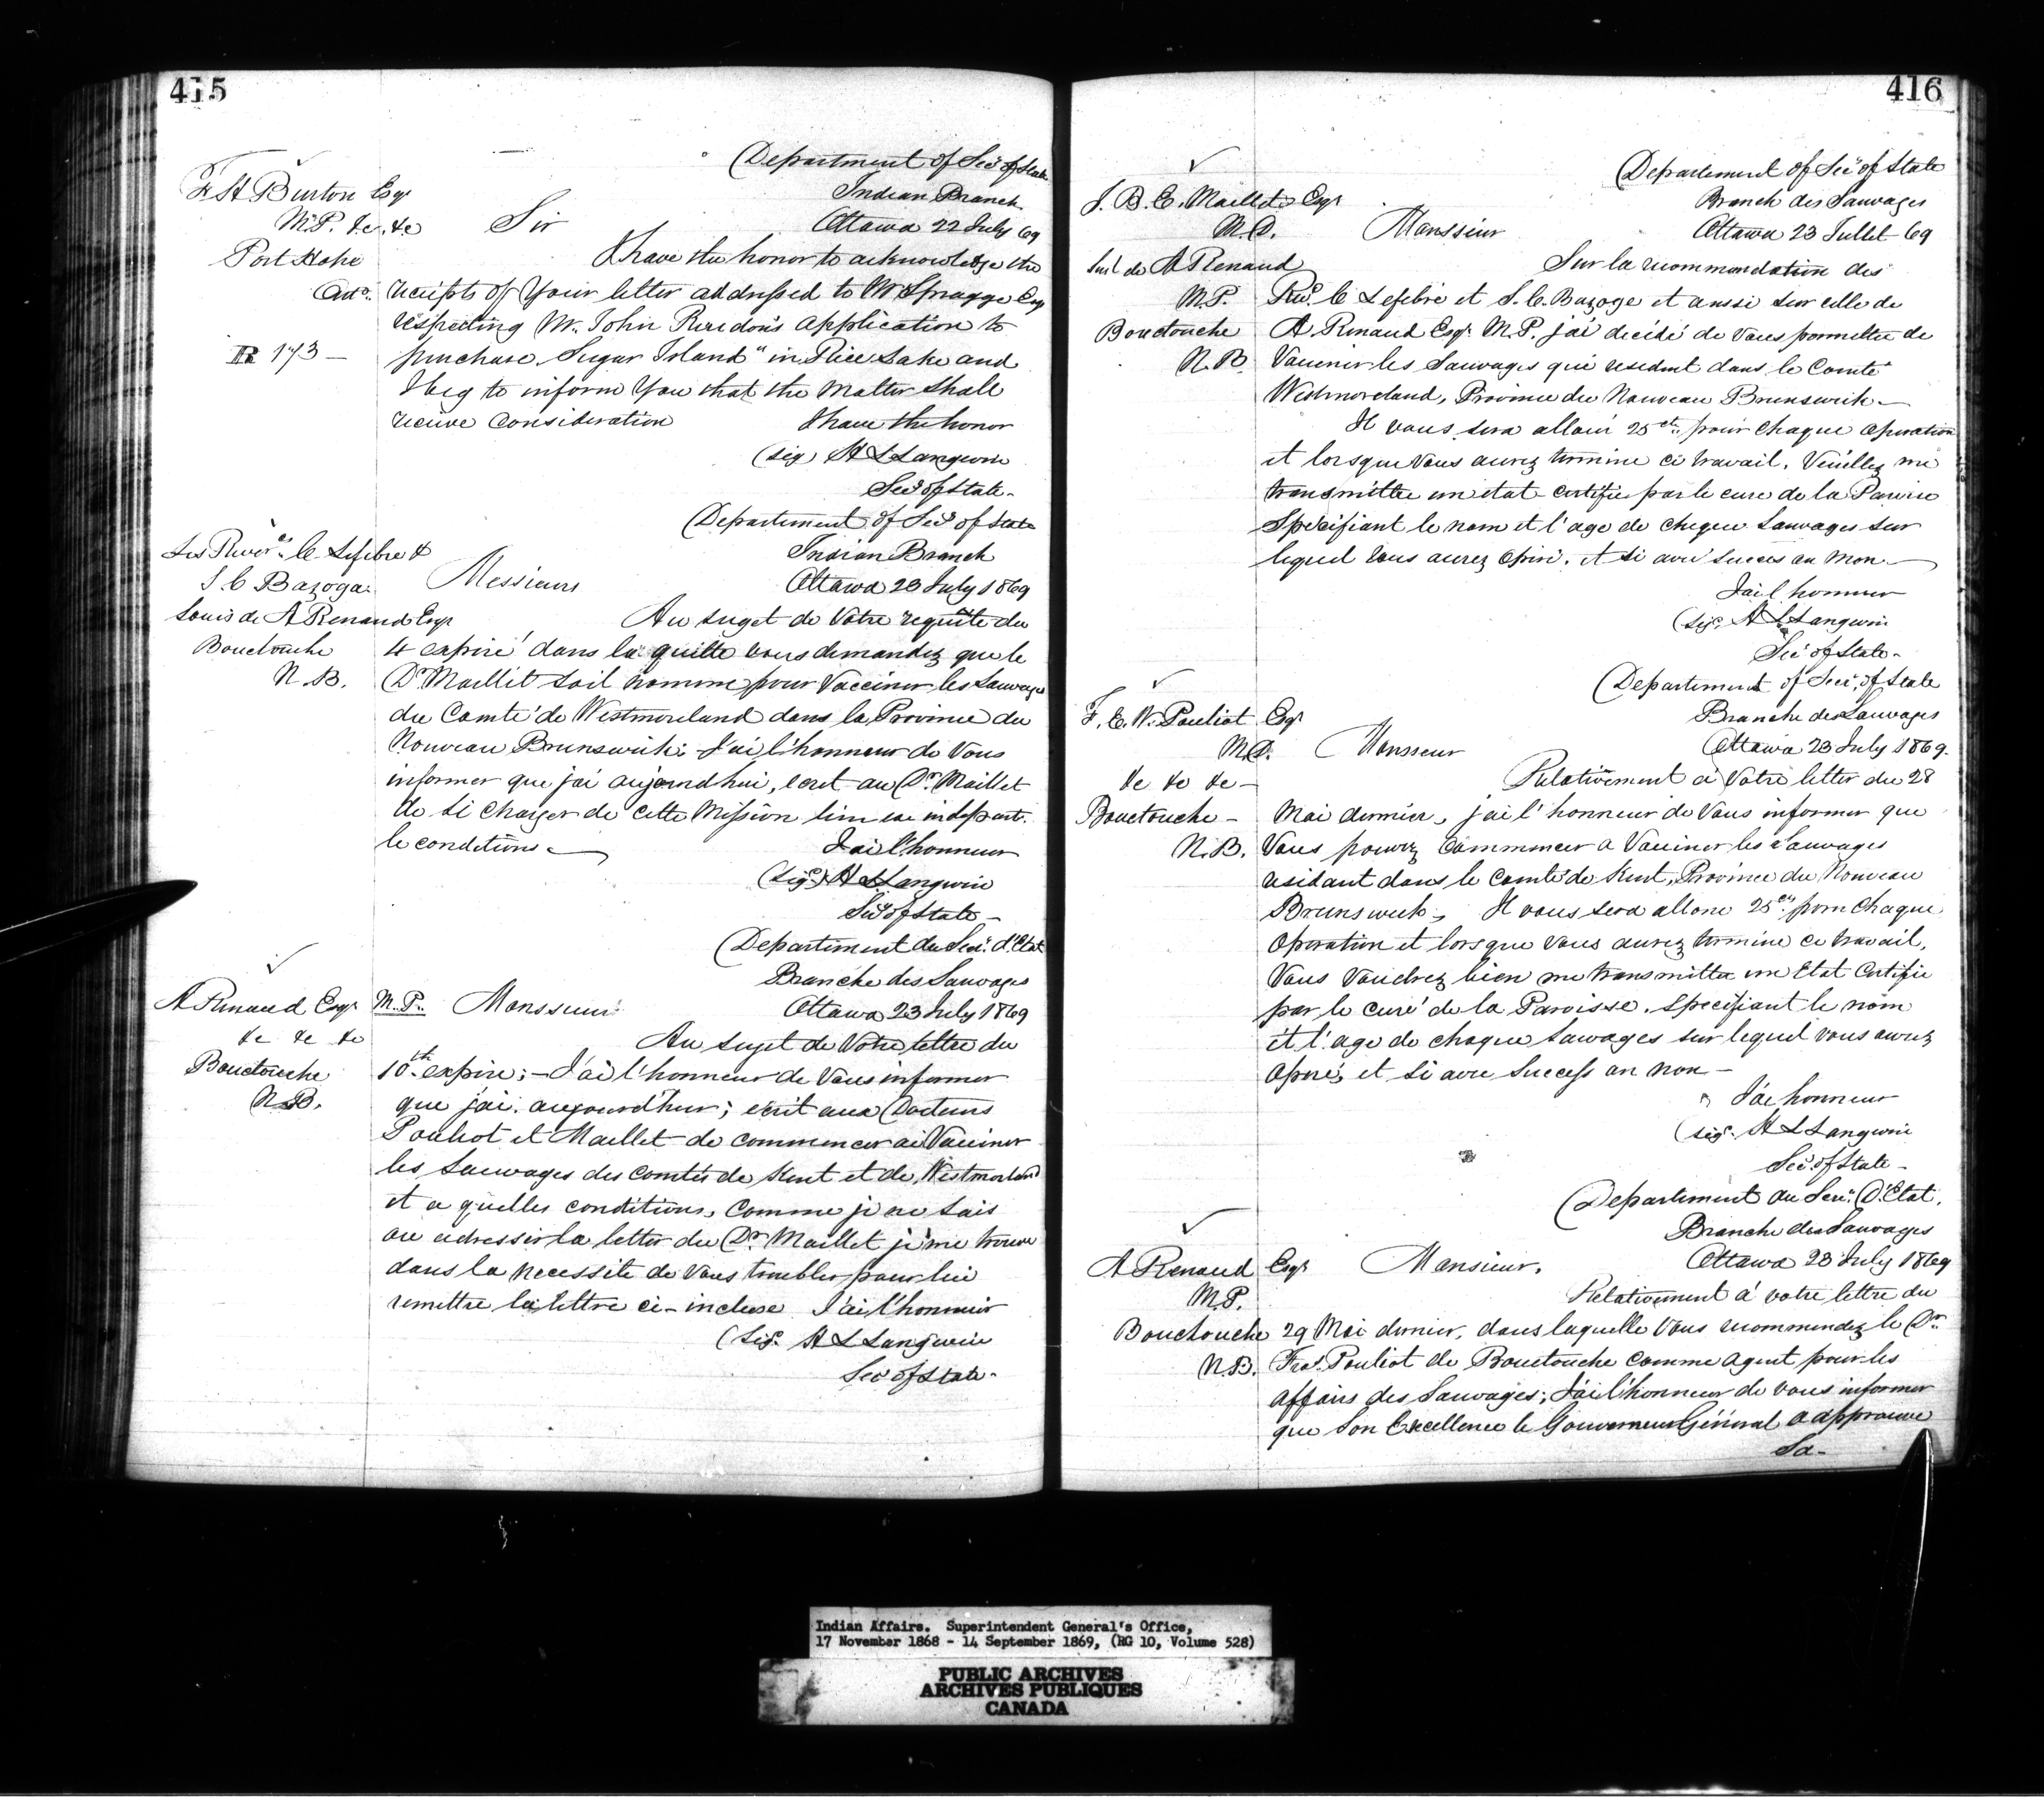 415
Department of Secy of State
Indian Branch
Ottawa 22 July 69
F H Burton Esqr
M.P. &c. &c
Port Hope
Onto.
R 173 —
Sir
I have the honor to acknowledge the
receipts of Your letter addressed to W Spragge Esq
respecting Mr. John Reredon's application to
purchase "Sugar Island" in Rice Lake and
I beg to inform You that the Matter shall
receive Consideration I have the honor
(sig) H L Langevin
Secy of State -
Department of Secy of State
Indian Branch
Ottawa 23 July 1869
Les Rever.ds C Lefebre &
J. C Bazoga.
Souis de A Renaud Esqr
Bouctouche
N.B.
Messieurs
Au suget de Votre requête du
4 expiré dans la quille vous demandez que le
Dr Maillit soit nomme pour Vacciner les Sauvages
du Comté de Westmoreland dans la Province du
Nouveau Brunswick: J'ai l'honneur de Vous
informer que j'ai aujourdhui, ecrit au Dr. Maillet
de si Charger de cette Mission
le conditions.
J'ai l'honneur
(sigd) H L Langevin
Secy of State -
Departiment du Secr. d'Etat
Branche des Sauvages
Ottawa 23 July 1869
A Renaud Esqr M.P.
&c &c &c
Bouctouche
N.B.
Monssieur
Au sujet de Votre lettre du
10th expire; - J'ai l'honneur de Vous informer
que j'ai. aujourd'hui; ecrit aux Docteurs
Pouliot et Maillet de commencer ai Vacciner
les Sauvages des Comtés de Kent et de Westmorland
et a quelles conditions, Comme je ne sais
ou adresser la letter du Dr. Maillet je me trouve
dans la necessite de Vous troubler pour lui
remettre la lettre ci-incluse J'ai l'honneur
(Sigd. H L Langevin
Secy of State -
416
Departement of Secy of State
Branch des Sauvages
Ottawa 23 Jullet 69
J. B. E. Maillet Esqr
M.D.
Suit de A Renaud
M.P.
Bouctouche
N.B.
Monssieur
Sur la recommendation des
Revd. C Lefebre et J. C. Bazoge et aussi sur celle de
A Renaud Esqr M.P. j'ai decidé de Vous permettre de
Vacciner les Sauvages qui resident dans le Comté
Westmoreland, Province du Nouveau Brunswick —
Il vous sera alloué 25 cts pour chaque operation
et lorsque Vous aurez termine ce travail. Veuillez me
transmittre un etat certifie par le cure de la Paroisse
Specifiant le nom et l'age de cheque Sauvages sur
lequel vous aurez opiré. et si avec succes ou Mon. —
J'ai l honneur
(sigd. H L Langevin
Secy of State -
Departiment of Secy, of State
Branche des Sauvages
Ottawa 23 July 1869.
F. E. W. Pouliot Esqr
M.D.
&c &c &c -
Bouctouche -
N.B.
Monsseur
Relativement a Votre letter du 28
Mai dernier, j'ai l'honneur de Vous informer que
Vous pouvez Commencer a Vacciner les Sauvages
residant dans le Comté de Kent, Province du Nouveau
Brunswick; Il vous sera alloue 25 cts pour Chaque
Operation et lorsque Vous aurez termine ce travail,
Vous Voudrez bien me transmitta un Etat Certifie
par le curé de la Paroisse. specifiant le nom
et l'age de chaque Sauvages sur lequel vous aurez
operé, et si avec Success ou non -
J'ai honneur
(sigd. H L Langevin
Secy of State -
Departiment du Secr. D'Etat.
Branche des Sauvages
Ottawa 23 July 1869
A Renaud Esqr
M.P.
Bouctouche
N.B.
Monsieur,
Relativement á votre lettre du
29 Mai dernier, dans laquelle Vous recommendez le Dr.
Frs. Pouliot de Bouctouche comme agent pour les
affairs des Sauvages; J'ai l'honneur de vous informer
que Son Excellence le Gouverneur Général a approuve
Sa -
Indian Affairs. Superintendent General's Office,
17 November 1868 - 14 September 1869, (RG 10, Volume 528)
PUBLIC ARCHIVES
ARCHIVES PUBLIQUES
CANADA